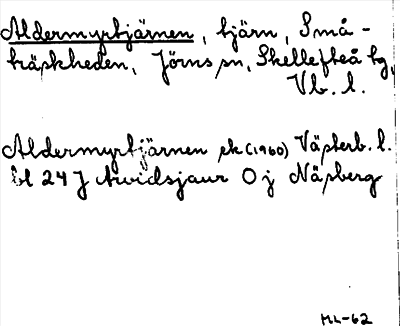 Aldermyrtjärnen, tjärn, Små-
träskheden, Jörns sn, Skellefteå tg,
Vb. l.
Aldermyrtjärnen ek (1960) Västerb. l.
bl 24 J Arvidsjaur 0 j Näsberg
ML-62